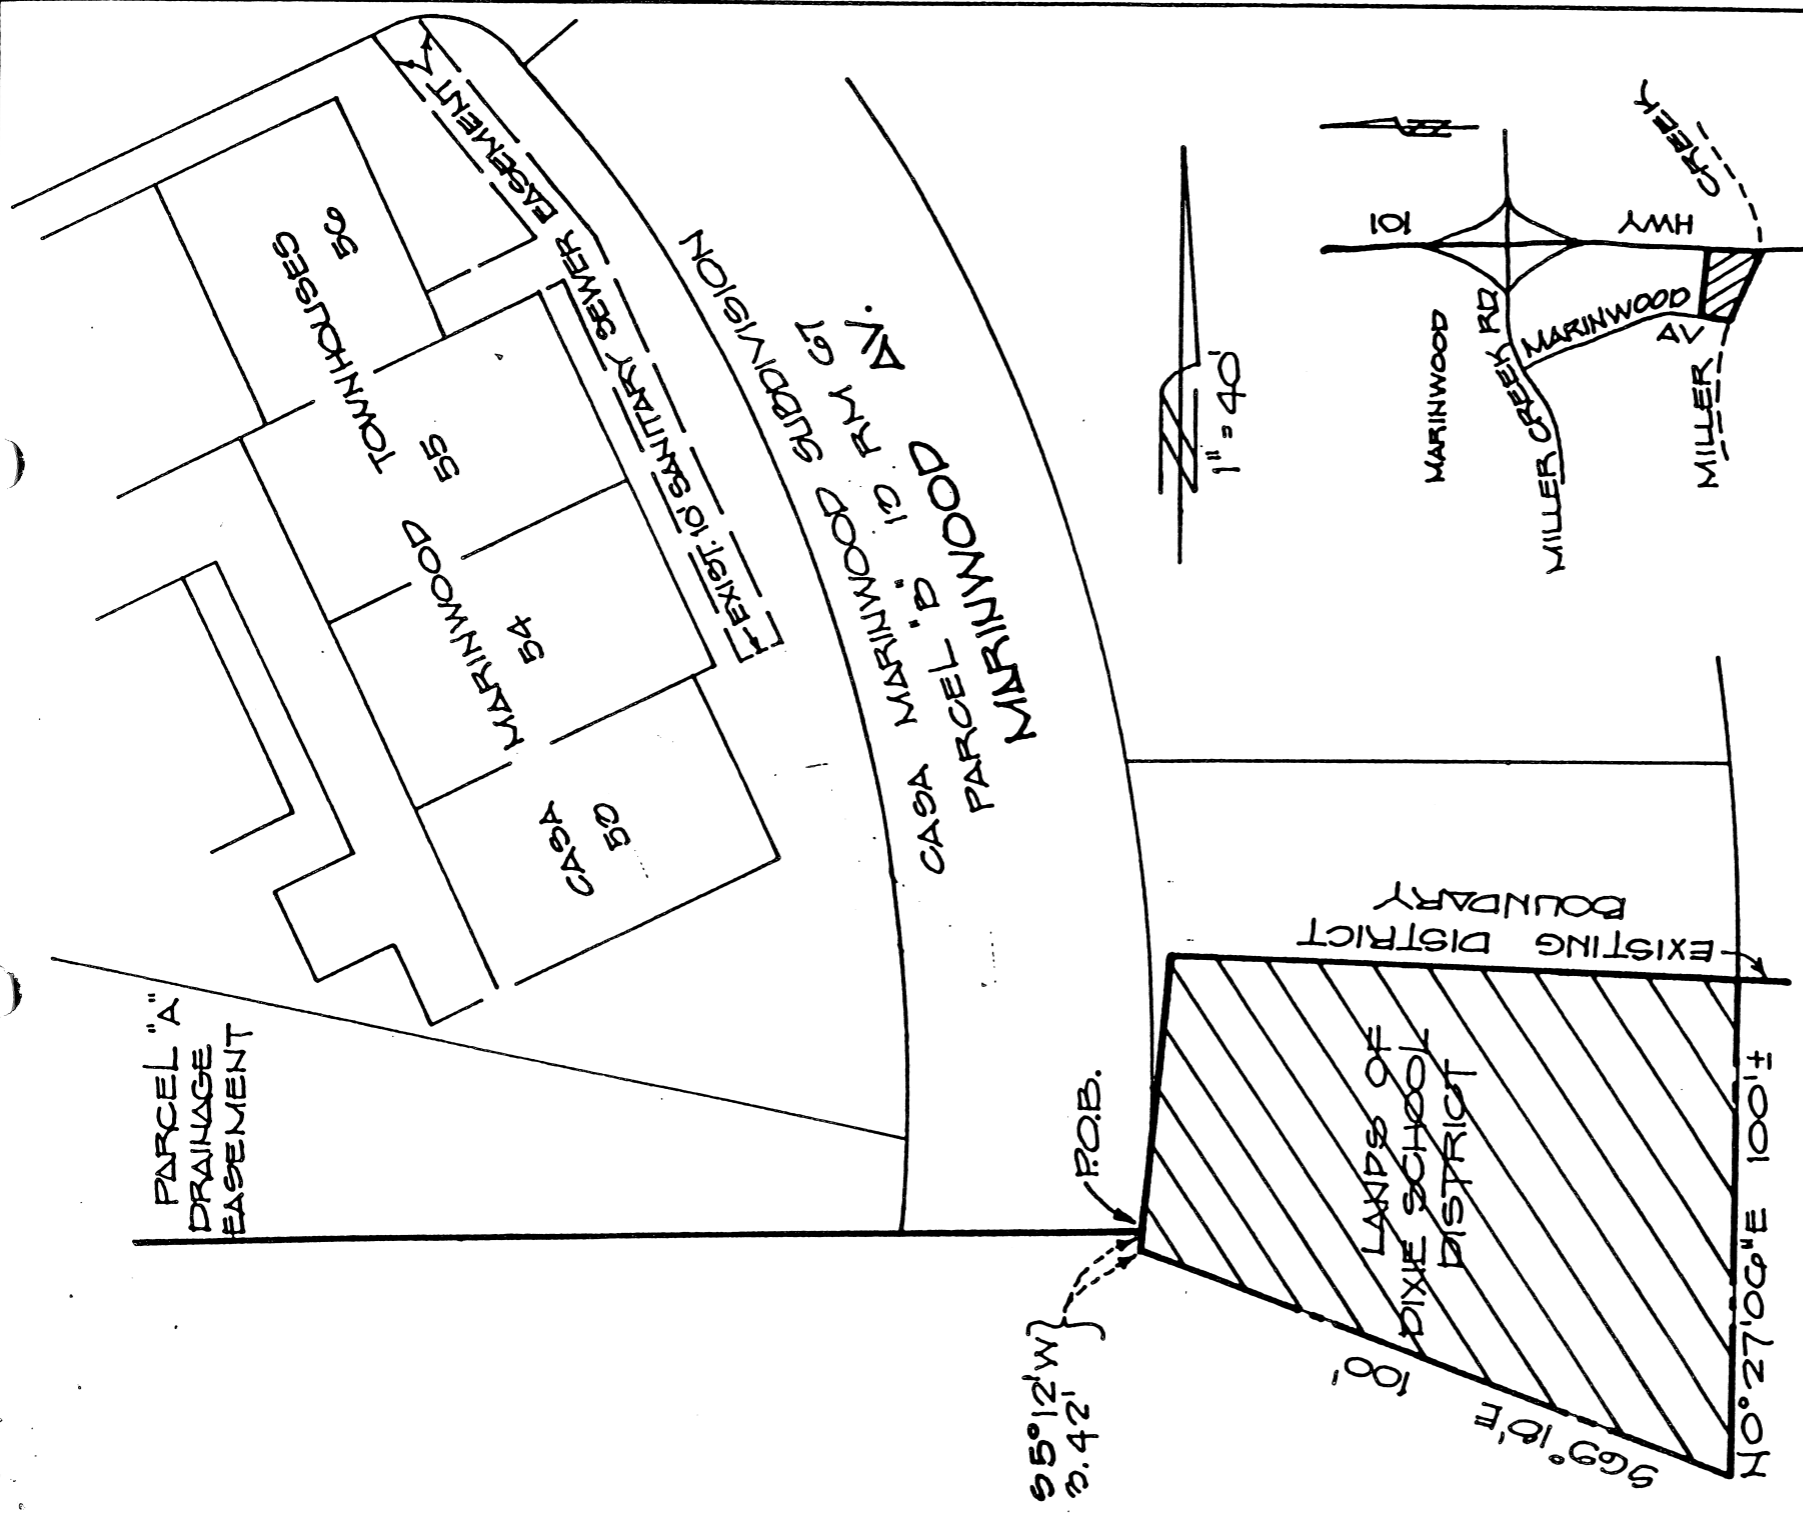 PARCEL "A"
DRAINAGE
EASEMENT
CASA MARINWOOD TOWNHOUSES
53
54
55
56
EXIST. 10' SANITARY SEWER EASEMENT
CASA MARINWOOD SUBDIVISION
PARCEL "B" 13 RM 67
MARINWOOD AV.
1" = 40'
MARINWOOD
MILLER CREEK RD
MARINWOOD
AV
HWY 101
MILLER CREEK
EXISTING DISTRICT
BOUNDARY
P.O.B.
S5°12'W
3.42'
LANDS OF
DIXIE SCHOOL
DISTRICT
S69°18'E 100'
N0°27'06"E 100'±